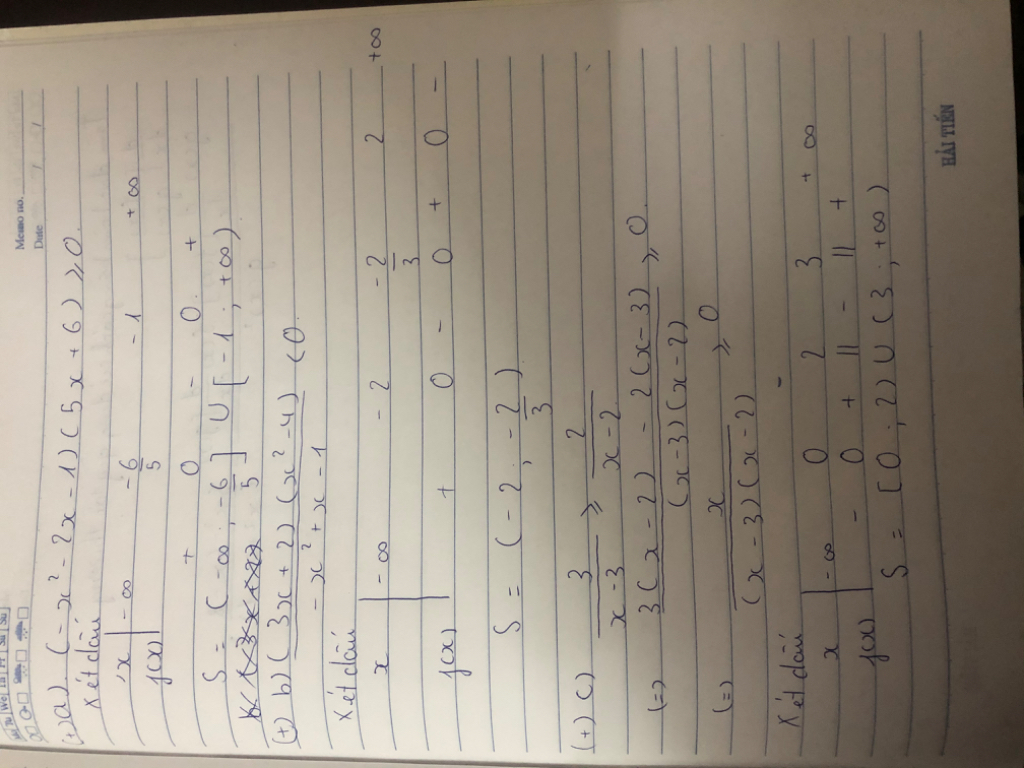 Memo no.
Date
Mo Tu We Th Fr Sa Su
(+) a) (-x² - 2x - 1)(5x + 6) ≥ 0.
Xét dấu
x | -∞ -6/5 -1 +∞
f(x) | + 0 - 0 +
S = (-∞; -6/5] ∪ [-1; +∞)
(+) b) (3x + 2)(x² - 4) / -x² + x - 1 < 0.
Xét dấu
x | -∞ -2 -2/3 2 +∞
f(x) | + 0 - 0 + 0 -
S = (-2; -2/3)
(+) c) 3/x-3 ≥ 2/x-2
(=) 3(x - 2) - 2(x - 3) / (x-3)(x-2) ≥ 0.
(=) x / (x - 3)(x - 2) ≥ 0
Xét dấu
x | -∞ 0 2 3 +∞
f(x) | - 0 + || - || +
S = [0; 2) ∪ (3; +∞)
HẢI TIẾN